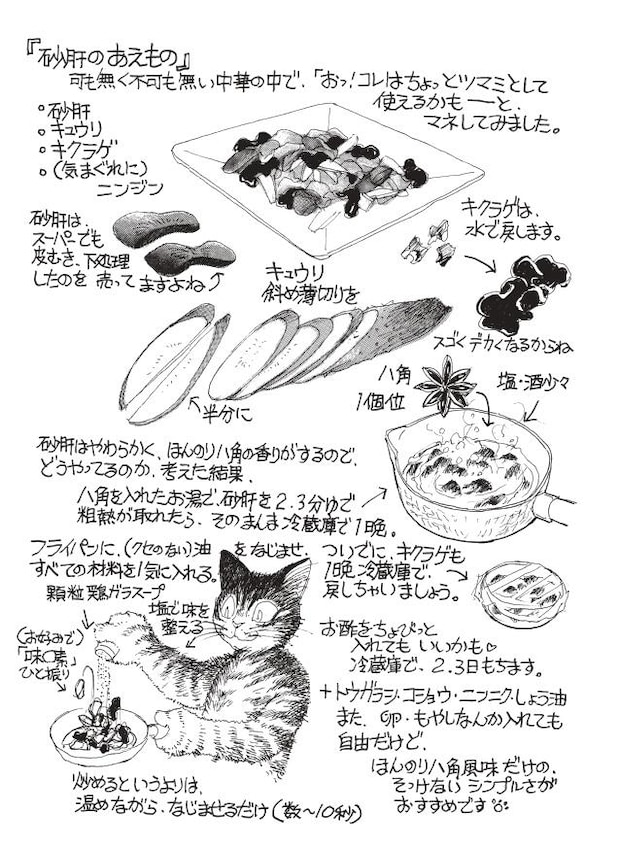 『砂肝のあえもの』
可も無く不可も無い中華の中で、「おっ!コレはちょっとツマミとして
使えるかも――と、
マネしてみました。
○砂肝
○キュウリ
○キクラゲ
○(気まぐれに)
ニンジン
砂肝は、
スーパーでも
皮むき、下処理
したのを売ってますよね
キクラゲは、
水で戻します。
スゴくデカくなるからね
キュウリ
斜め薄切りを
半分に
八角
1個位
塩・酒少々
砂肝はやわらかく、ほんのり八角の香りがするので、
どうやってるのか、考えた結果、
八角を入れたお湯で、砂肝を2.3分ゆで
粗熱が取れたら、そのまんま冷蔵庫で1晩。
フライパンに、(クセのない)油をなじませ、
すべての材料を1気に入れる。
顆粒鶏ガラスープ
塩で味を
整える
(お好みで)
「味〇素」
ひと振り
炒めるというよりは、
温めながら、なじませるだけ(数~10秒)
ついでに、キクラゲも
1晩冷蔵庫で、
戻しちゃいましょう。
お酢をちょびっと
入れてもいいかも♡
冷蔵庫で、2.3日もちます。
+トウガラシ・コショウ・ニンニク・しょう油
また、卵・もやしなんか入れても
自由だけど、
ほんのり八角風味だけの、
そっけないシンプルさが
おすすめです